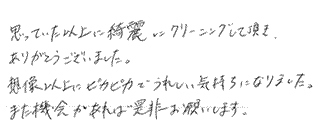 思っていた以上に綺麗にクリーニングして頂き、
ありがとうございました。
想像以上にピカピカでうれしい気持ちになりました。
また機会があれば是非お願いします。